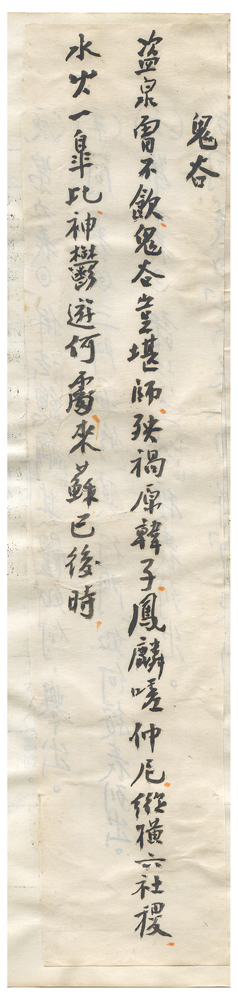 鬼谷
盗泉甯不飲鬼谷豈堪師殃禍原韓子鳳麟嗟仲尼縱橫六社稷
水火一皐比神鬱遊何處來蘇已後時